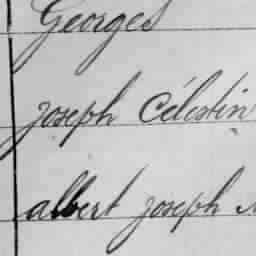 Georges
joseph Célestin
albert joseph